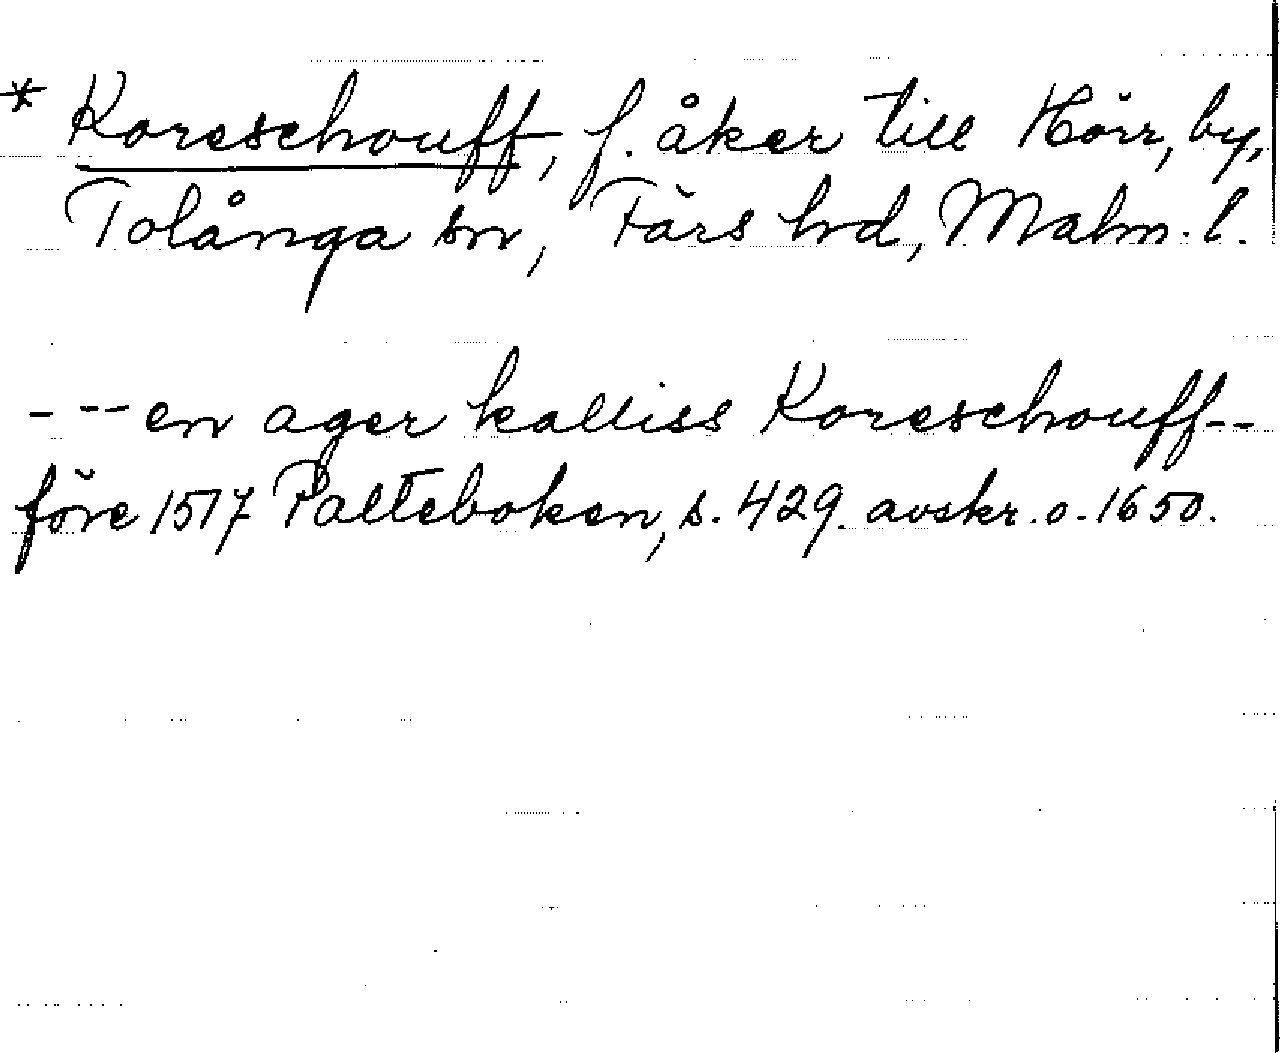 * Koreschouff, f. åker till Hörr, by,
Tolånga sn, Färs hrd, Malm. l.
- -- en ager kalliss Koreschouff--
före 1517 Palteboken, s. 429. avskr. o. 1650.